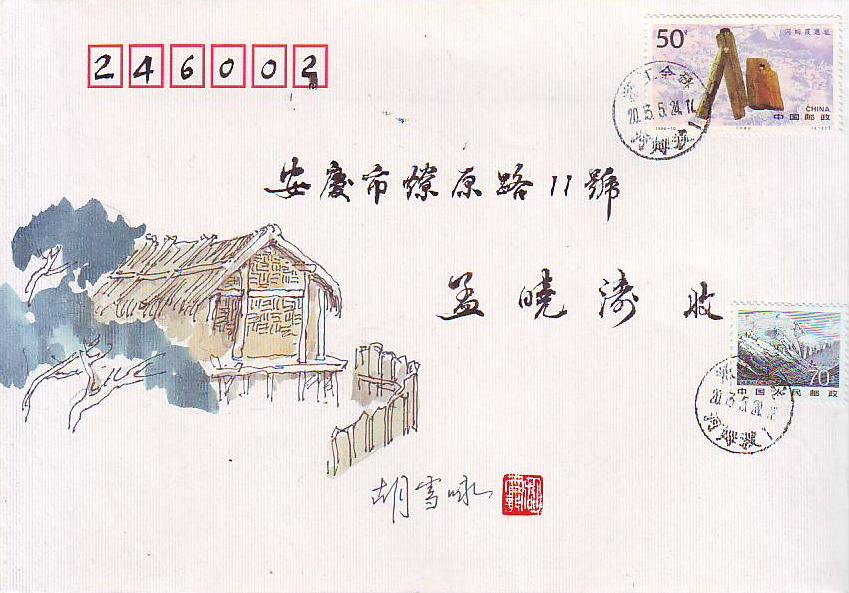 246002
50分
河姆渡遗址
CHINA
中国邮政
安慶市燎原路11號
孟曉濤 收
70
中国人民邮政
胡雪咏